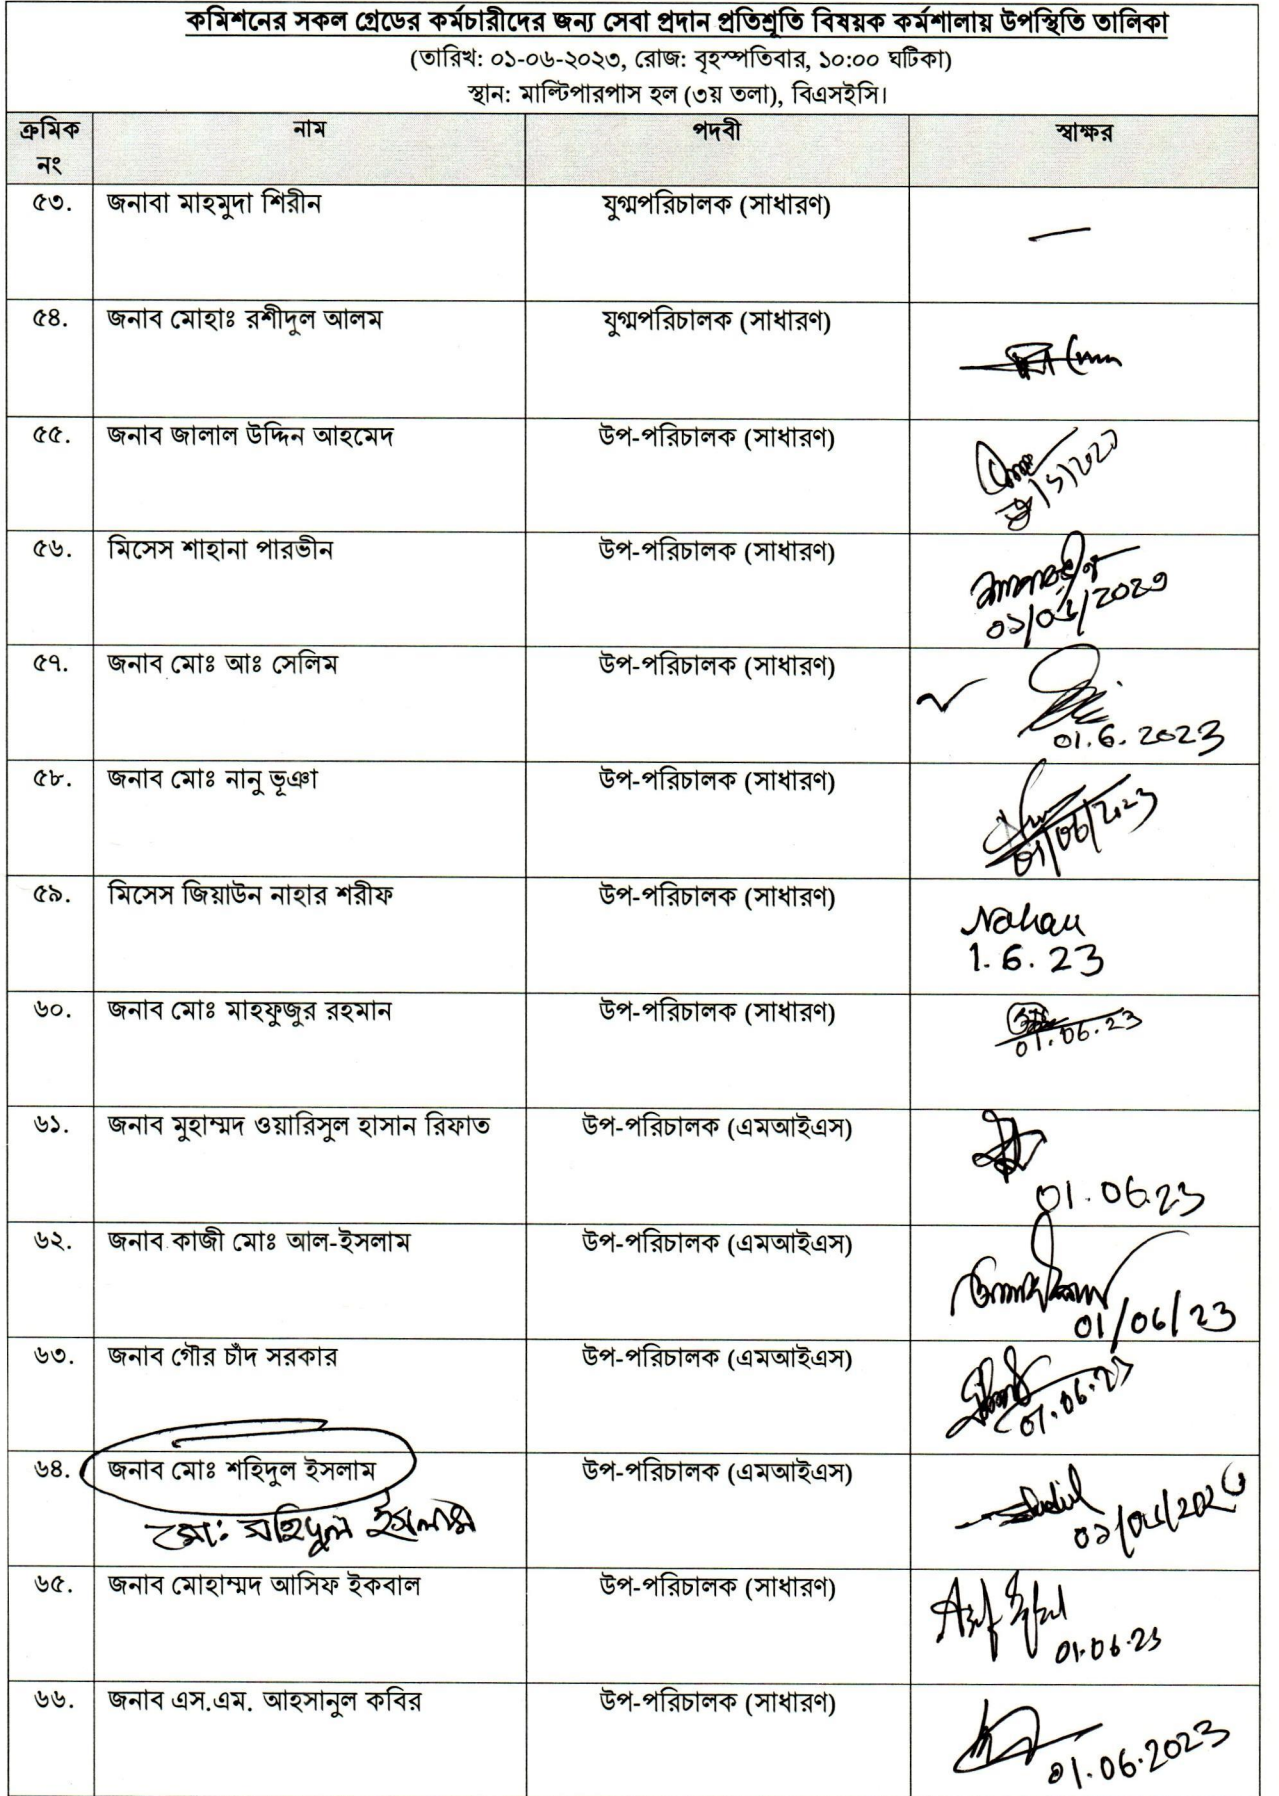 কমিশনের সকল গ্রেডের কর্মচারীদের জন্য সেবা প্রদান প্রতিশ্রুতি বিষয়ক কর্মশালায় উপস্থিতি তালিকা
(তারিখ: ০১-০৬-২০২৩, রোজ: বৃহস্পতিবার, ১০:০০ ঘটিকা)
স্থান: মাল্টিপারপাস হল (৩য় তলা), বিএসইসি।
ক্রমিক নং নাম পদবী স্বাক্ষর
৫৩. জনাবা মাহমুদা শিরীন যুগ্মপরিচালক (সাধারণ) —
৫৪. জনাব মোহাঃ রশীদুল আলম যুগ্মপরিচালক (সাধারণ)
৫৫. জনাব জালাল উদ্দিন আহমেদ উপ-পরিচালক (সাধারণ)
৫৬. মিসেস শাহানা পারভীন উপ-পরিচালক (সাধারণ)
০১/০৬/২০২৩
৫৭. জনাব মোঃ আঃ সেলিম উপ-পরিচালক (সাধারণ)
01.6.2023
৫৮. জনাব মোঃ নানু ভূঞা উপ-পরিচালক (সাধারণ)
01/06/23
৫৯. মিসেস জিয়াউন নাহার শরীফ উপ-পরিচালক (সাধারণ) Nahar
1.6.23
৬০. জনাব মোঃ মাহফুজুর রহমান উপ-পরিচালক (সাধারণ)
01.06.23
৬১. জনাব মুহাম্মদ ওয়ারিসুল হাসান রিফাত উপ-পরিচালক (এমআইএস)
01.06.23
৬২. জনাব কাজী মোঃ আল-ইসলাম উপ-পরিচালক (এমআইএস)
01/06/23
৬৩. জনাব গৌর চাঁদ সরকার উপ-পরিচালক (এমআইএস)
01.06.23
৬৪. জনাব মোঃ শহিদুল ইসলাম উপ-পরিচালক (এমআইএস)
মো: সহিদুল ইসলাম ০১/০৬/২০২৩
৬৫. জনাব মোহাম্মদ আসিফ ইকবাল উপ-পরিচালক (সাধারণ)
01.06.23
৬৬. জনাব এস.এম. আহসানুল কবির উপ-পরিচালক (সাধারণ)
01.06.2023